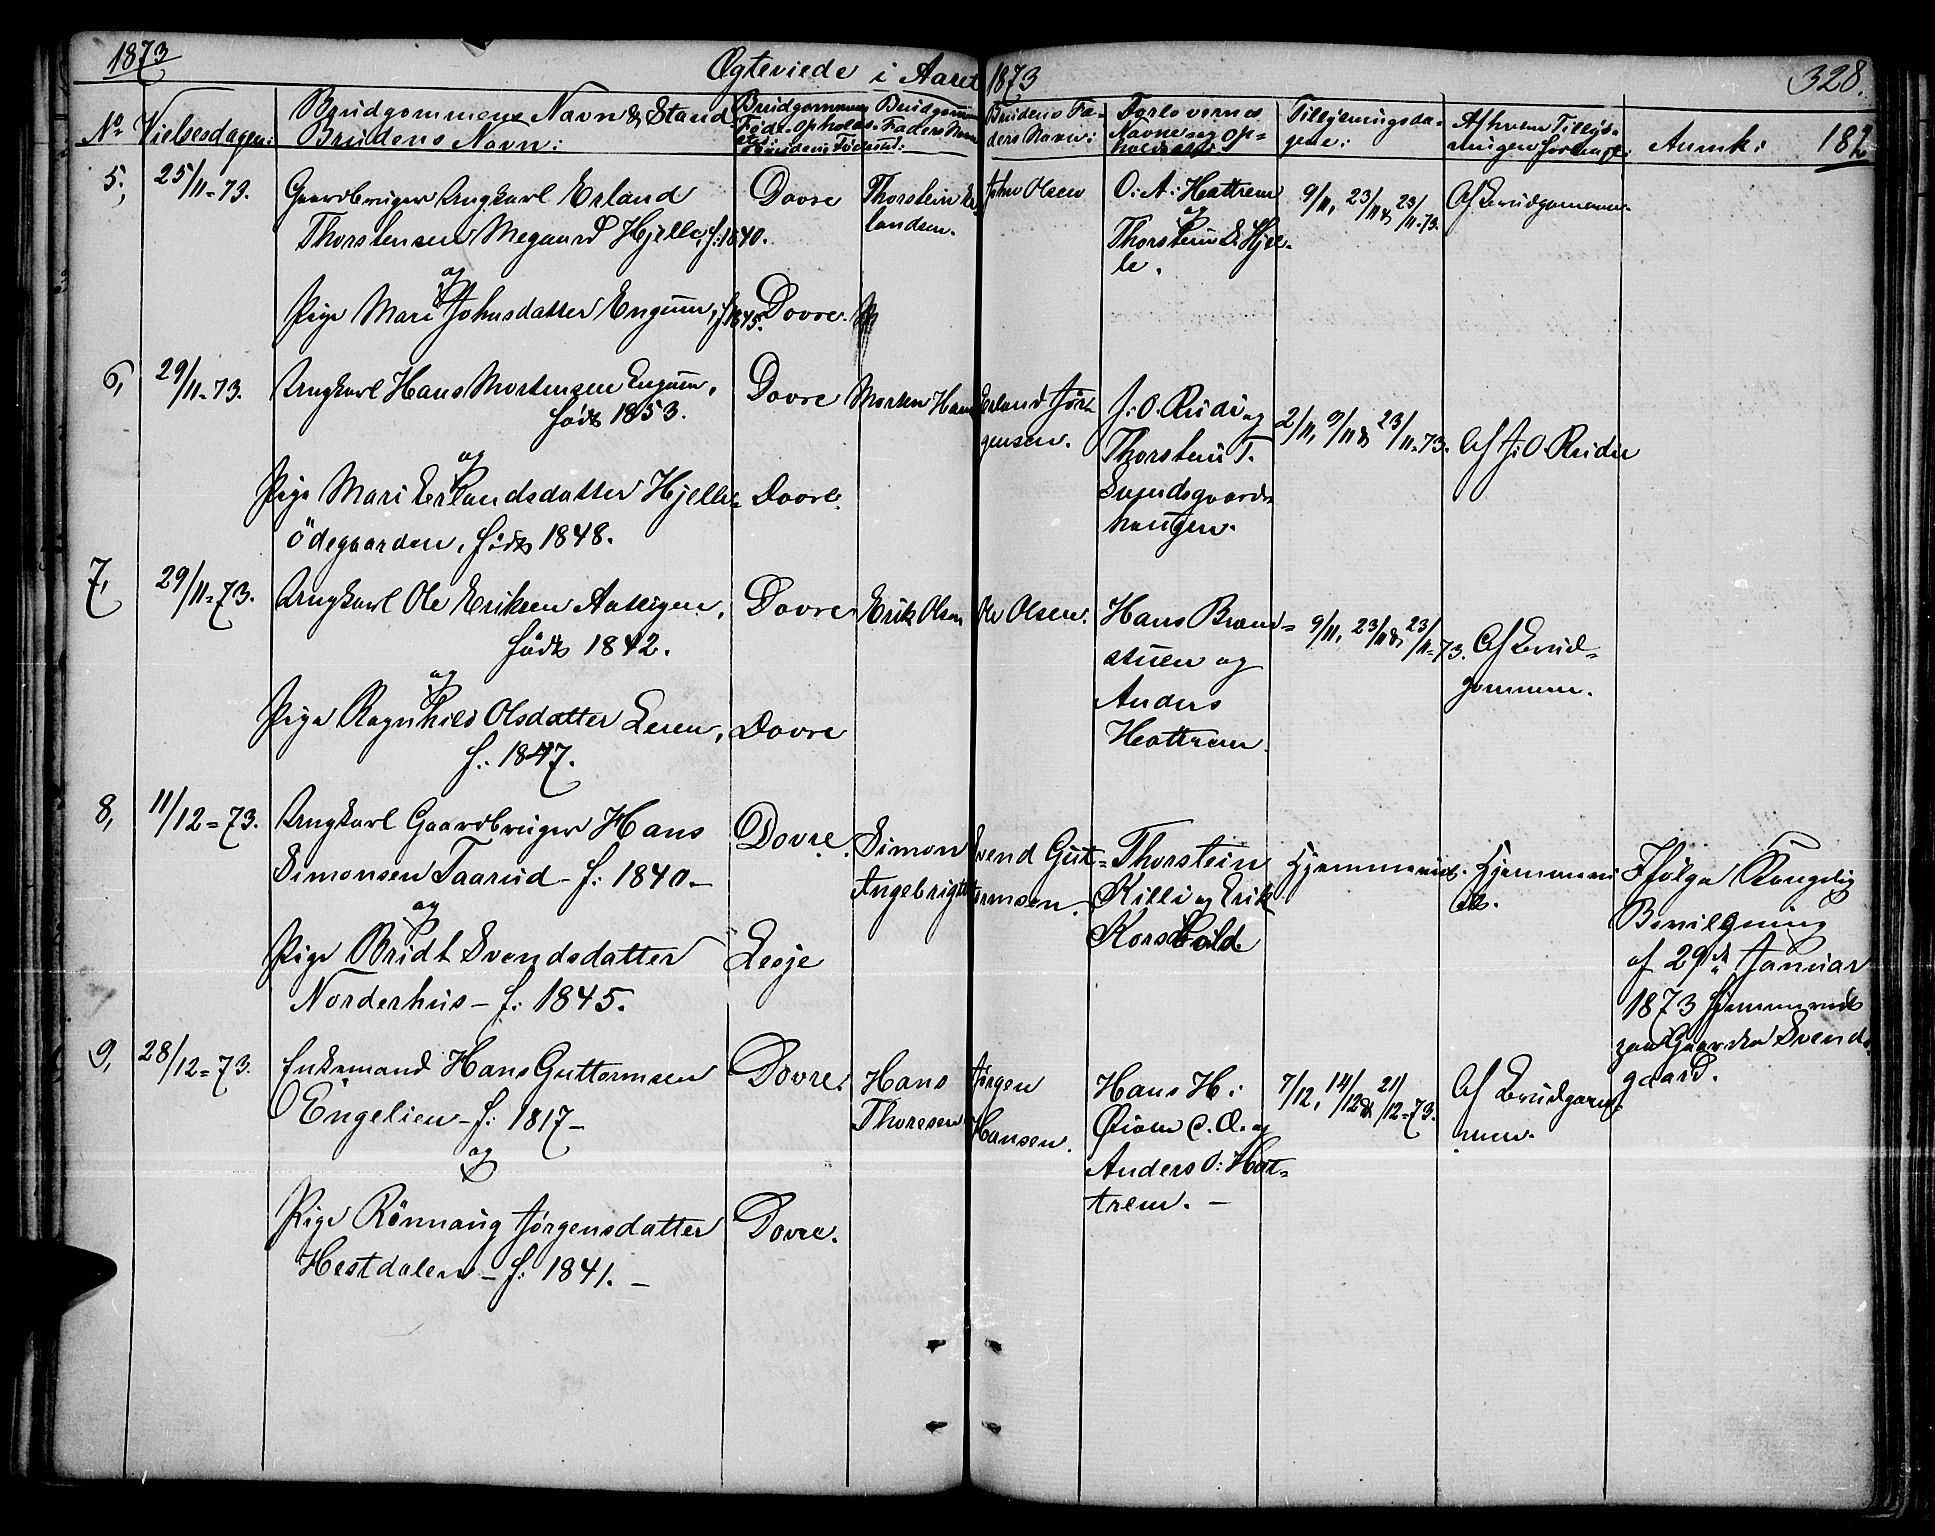 1873
Ægteviede i Aaret 1873
328.
No. Vielsesdagen: Brudgommens Navn & Stand Brudens Navn: Brudgommens Føde- Opholds- Brudens Fødested: Brudgommens Faders Navn
Brudens Faders Navn: Forlovernes Navne og Opholdssted: Tillysningsdagene: Af hvem Tillysningen forlangt: Anmk: 182
5, 25/11-73.
Gaardbruger Ungkarl Erland
Thorstensen Megaard Hjelle, f: 1840.
og
Pige Mari Johnsdatter Engum, f 1845.
Dovre
Dovre.
Thorstein Er-
landsen.
John Olsen
O: A: Hattrem
og
Thorstein E. Hjel-
le.
9/11, 23/11 & 23/11-73.
Af Brudgommen.
6, 29/11-73.
Ungkarl Hans Mortensen Engum,
født 1853.
og
Pige Mari Erlandsdatter Hjelle-
ödegaarden, født 1848.
Dovre
Dovre.
Morten Hans
Erland Jör-
gensen.
J: O. Rudi og
Thorstein T.
Svendsgaards-
haugen.
2/11, 9/11 & 23/11-73.
Af J: O Rudi
7, 29/11-73.
Ungkarl Ole Eriksen
født 1842.
og
Pige Ragnhild Olsdatter Leren,
f: 1847.
Dovre
Dovre
Erik Olsen
Ole Olsen.
Hans Brænd-
stuen og
Anders
Hattrem.
9/11, 23/11 & 23/11-73.
Af Brud-
gommen.
8, 11/12-73.
Ungkarl Gaardbruger Hans
Simonsen Taarud - f: 1840. -
og
Pige Bridt Svendsdatter
Norderhus - f: 1845.
Dovre.
Lesje
Simon
Ingebrigts
Svend Gut-
ormsen.
Thorstein
Killi og Erik
Korsvold
Hjemmeviet.
Hjemmevi-
et.
Ifølge Kongelig
Bevilgning
af 29de Januar
1873 hjemmeviet
paa Gaarden Svends-
gaard.
9, 28/12-73.
Enkemand Hans Guttormsen
Engelien - f: 1817 -
og
Pige Rönnaug Jörgensdatter
Hestdalen - f: 1841. -
Dovre.
Dovre.
Hans
Thoresen
Jörgen
Hansen.
Hans H:
og
Anders O: Hat-
trem. -
7/12, 14/12 & 21/12-73.
Af Brudgom-
men.